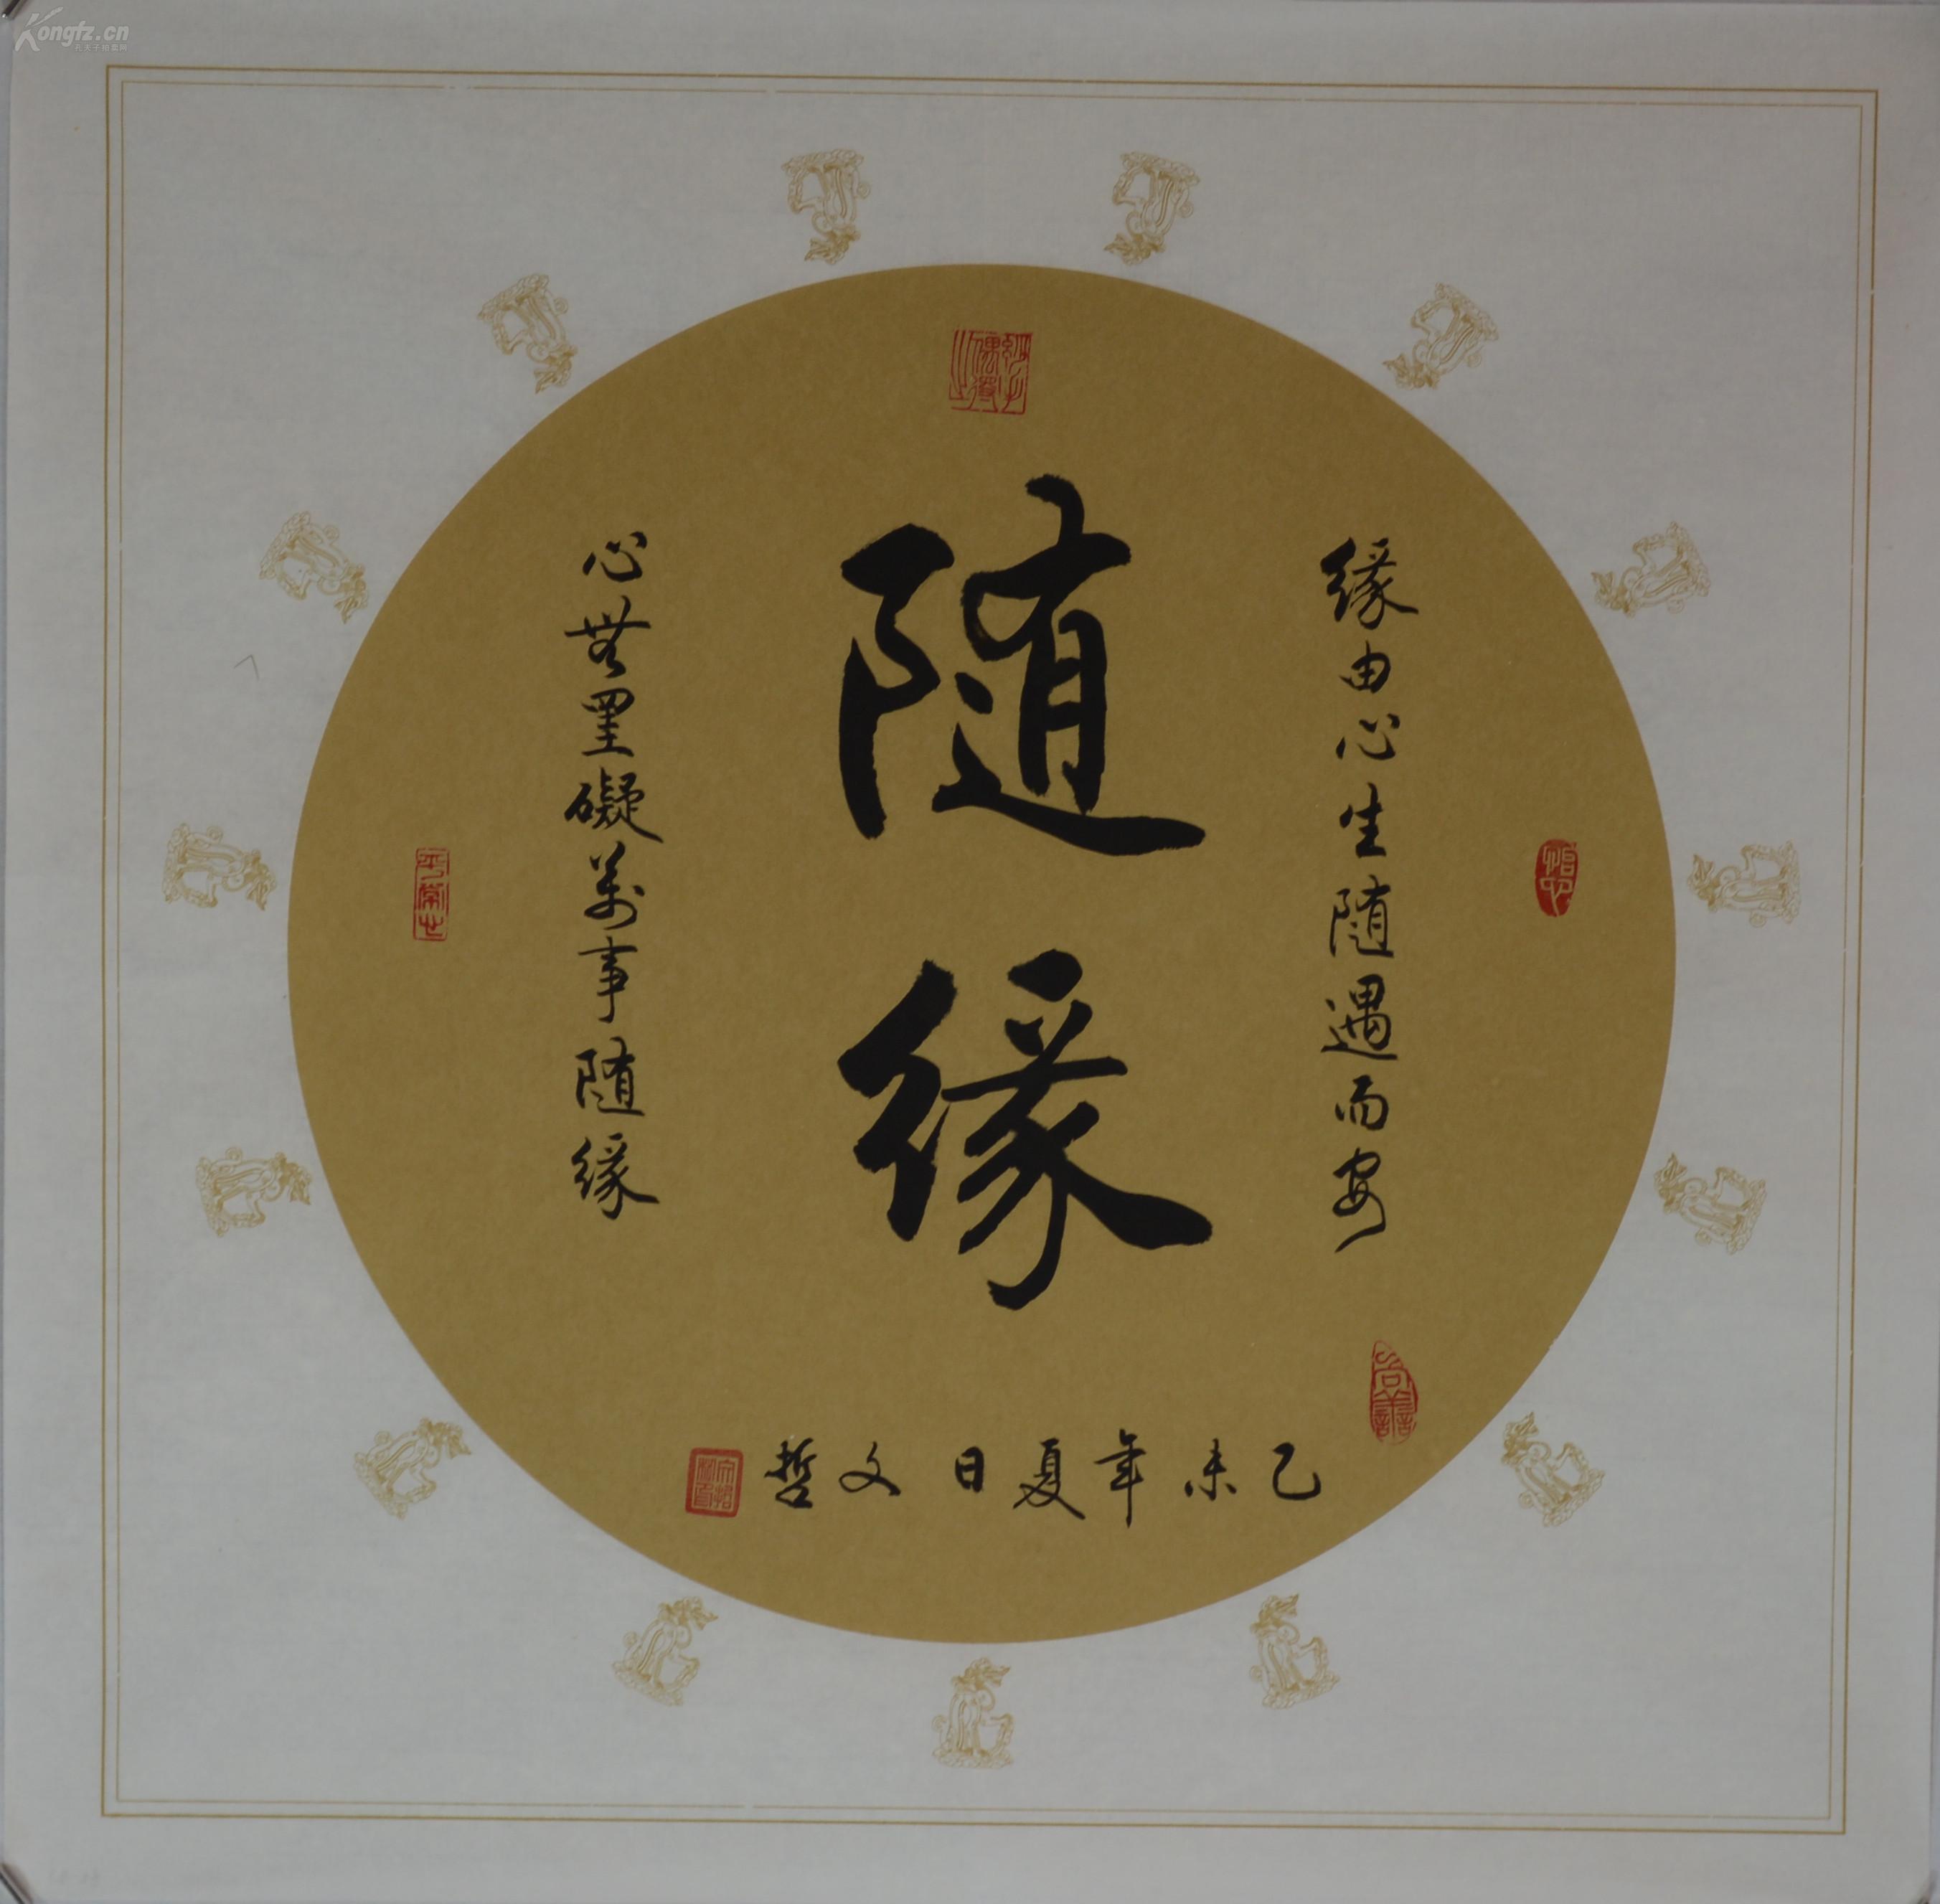 Kongfz.cn
随缘
缘由心生随遇而安
心無罣礙萬事随缘
乙未年夏日 文哲